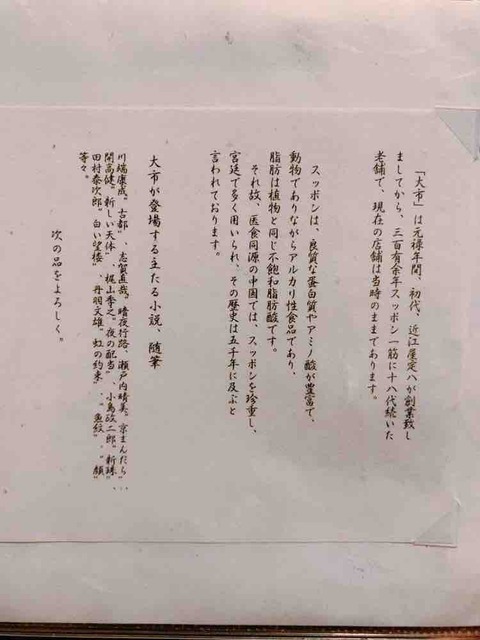 「大市」は元禄年間、初代、近江屋定八が創業致し
ましてから、三百有余年スッポン一筋に十八代続いた
老舗で、現在の店舗は当時のままであります。
スッポンは、良質な蛋白質やアミノ酸が豊富で、
動物でありながらアルカリ性食品であり、
脂肪は植物と同じ不飽和脂肪酸です。
それ故、医食同源の中国では、スッポンを珍重し、
宮廷で多く用いられ、その歴史は五千年に及ぶと
言われております。
大市が登場する主たる小説、随筆
川端康成〝古都〟、志賀直哉〝暗夜行路、瀬戸内晴美〝京まんだら〟、
開高健〝新しい天体〟、梶山季之〝夜の配当〟、小島政二郎〝新球〟、
田村泰次郎〝白い望楼〟、丹羽文雄〝虹の約束〟、〝魚紋〟、〝顔〟
等々。
次の品をよろしく。